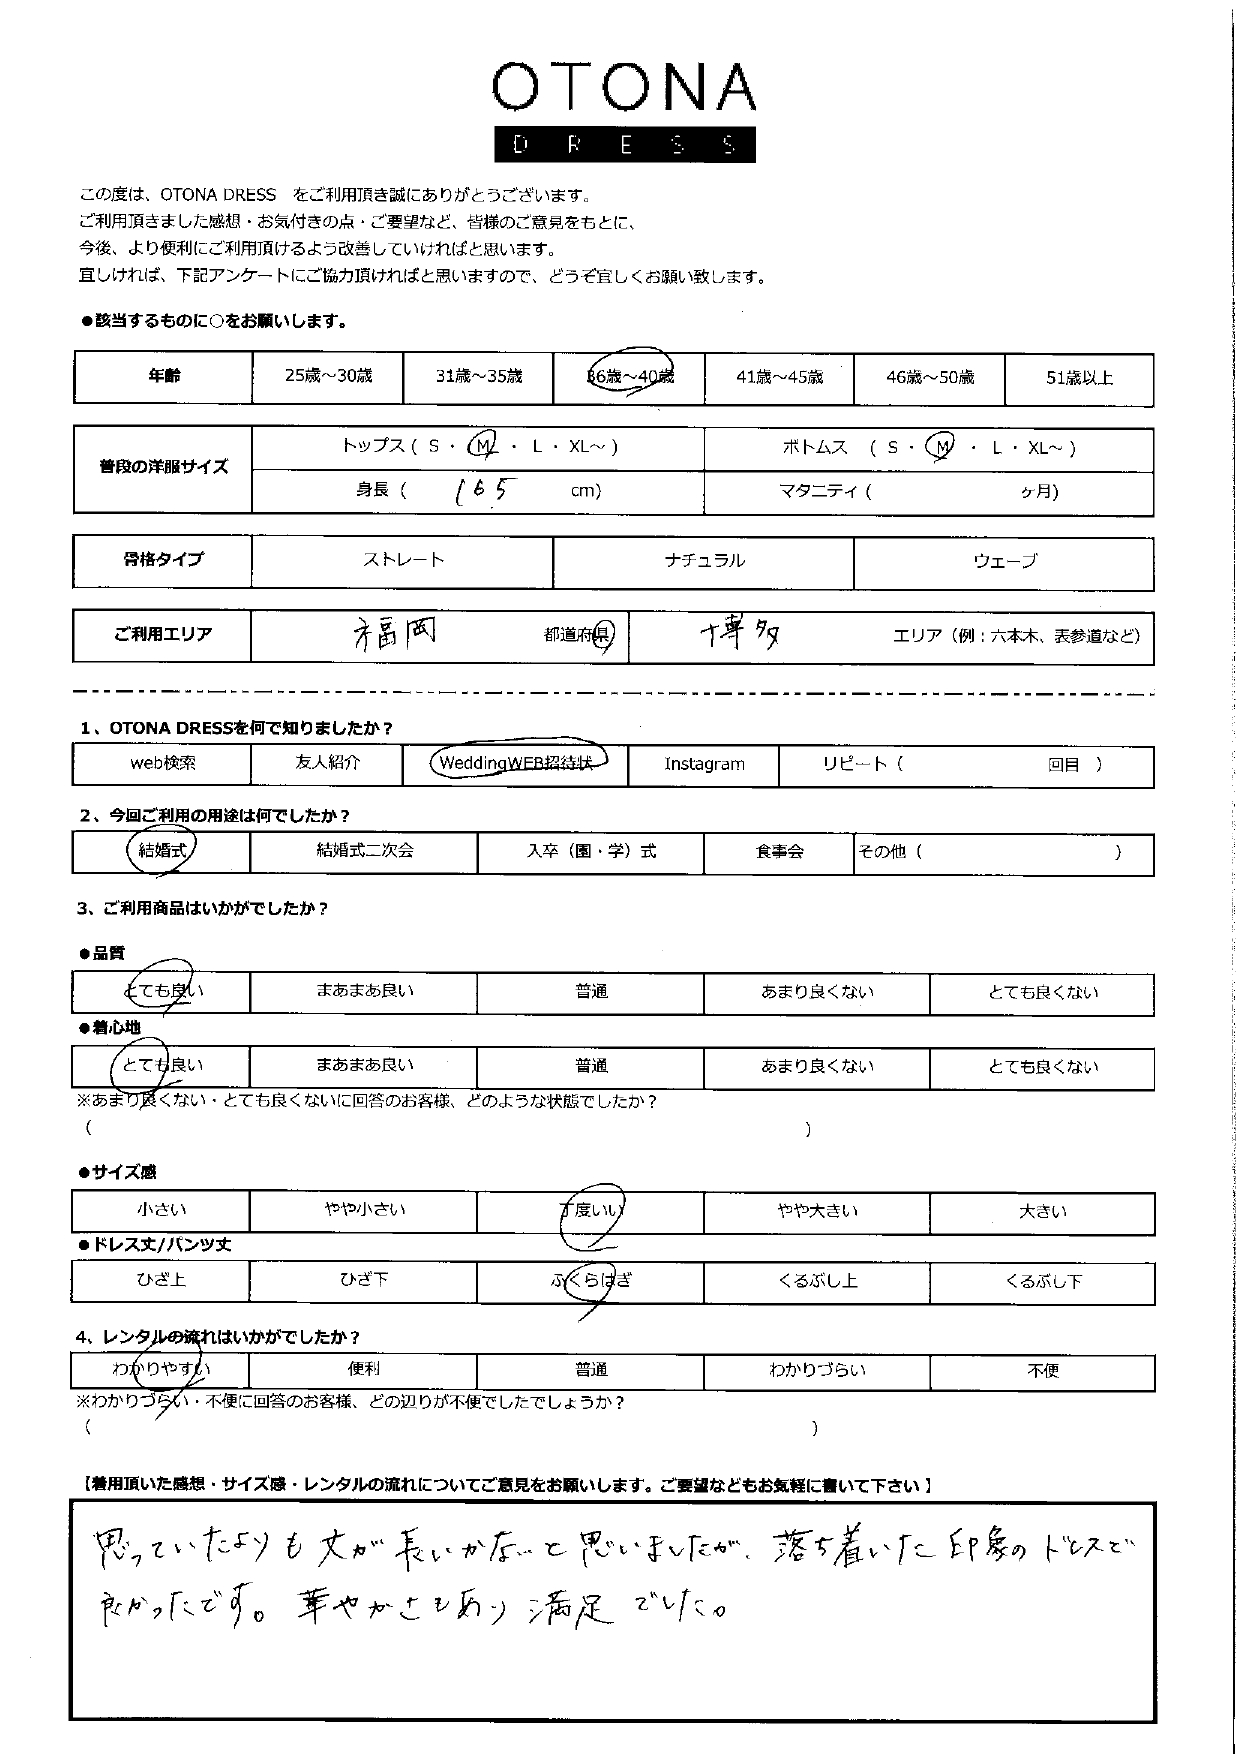 OTONA
DRESS
この度は、OTONA DRESS　をご利用頂き誠にありがとうございます。
ご利用頂きました感想・お気付きの点・ご要望など、皆様のご意見をもとに、
今後、より便利にご利用頂けるよう改善していければと思います。
宜しければ、下記アンケートにご協力頂ければと思いますので、どうぞ宜しくお願い致します。
●該当するものに○をお願いします。
年齢 25歳～30歳 31歳～35歳 36歳～40歳 41歳～45歳 46歳～50歳 51歳以上
普段の洋服サイズ トップス ( S ・ M ・ L ・ XL～ ) ボトムス ( S ・ M ・ L ・ XL～ )
身長 ( 165 cm) マタニティ ( ヶ月)
骨格タイプ ストレート ナチュラル ウェーブ
ご利用エリア 福岡 都道府県 博多 エリア（例：六本木、表参道など）
1、OTONA DRESSを何で知りましたか？
web検索 友人紹介 WeddingWEB招待状 Instagram リピート ( 回目 )
2、今回ご利用の用途は何でしたか？
結婚式 結婚式二次会 入卒（園・学）式 食事会 その他 ( )
3、ご利用商品はいかがでしたか？
●品質
とても良い まあまあ良い 普通 あまり良くない とても良くない
●着心地
とても良い まあまあ良い 普通 あまり良くない とても良くない
※あまり良くない・とても良くないに回答のお客様、どのような状態でしたか？
( )
●サイズ感
小さい やや小さい 丁度いい やや大きい 大きい
●ドレス丈/パンツ丈
ひざ上 ひざ下 ふくらはぎ くるぶし上 くるぶし下
4、レンタルの流れはいかがでしたか？
わかりやすい 便利 普通 わかりづらい 不便
※わかりづらい・不便に回答のお客様、どの辺りが不便でしたでしょうか？
( )
【着用頂いた感想・サイズ感・レンタルの流れについてご意見をお願いします。ご要望などもお気軽に書いて下さい】
思っていたよりも丈が長いかな…と思いましたが、落ち着いた印象のドレスで
良かったです。華やかさもあり満足でした。